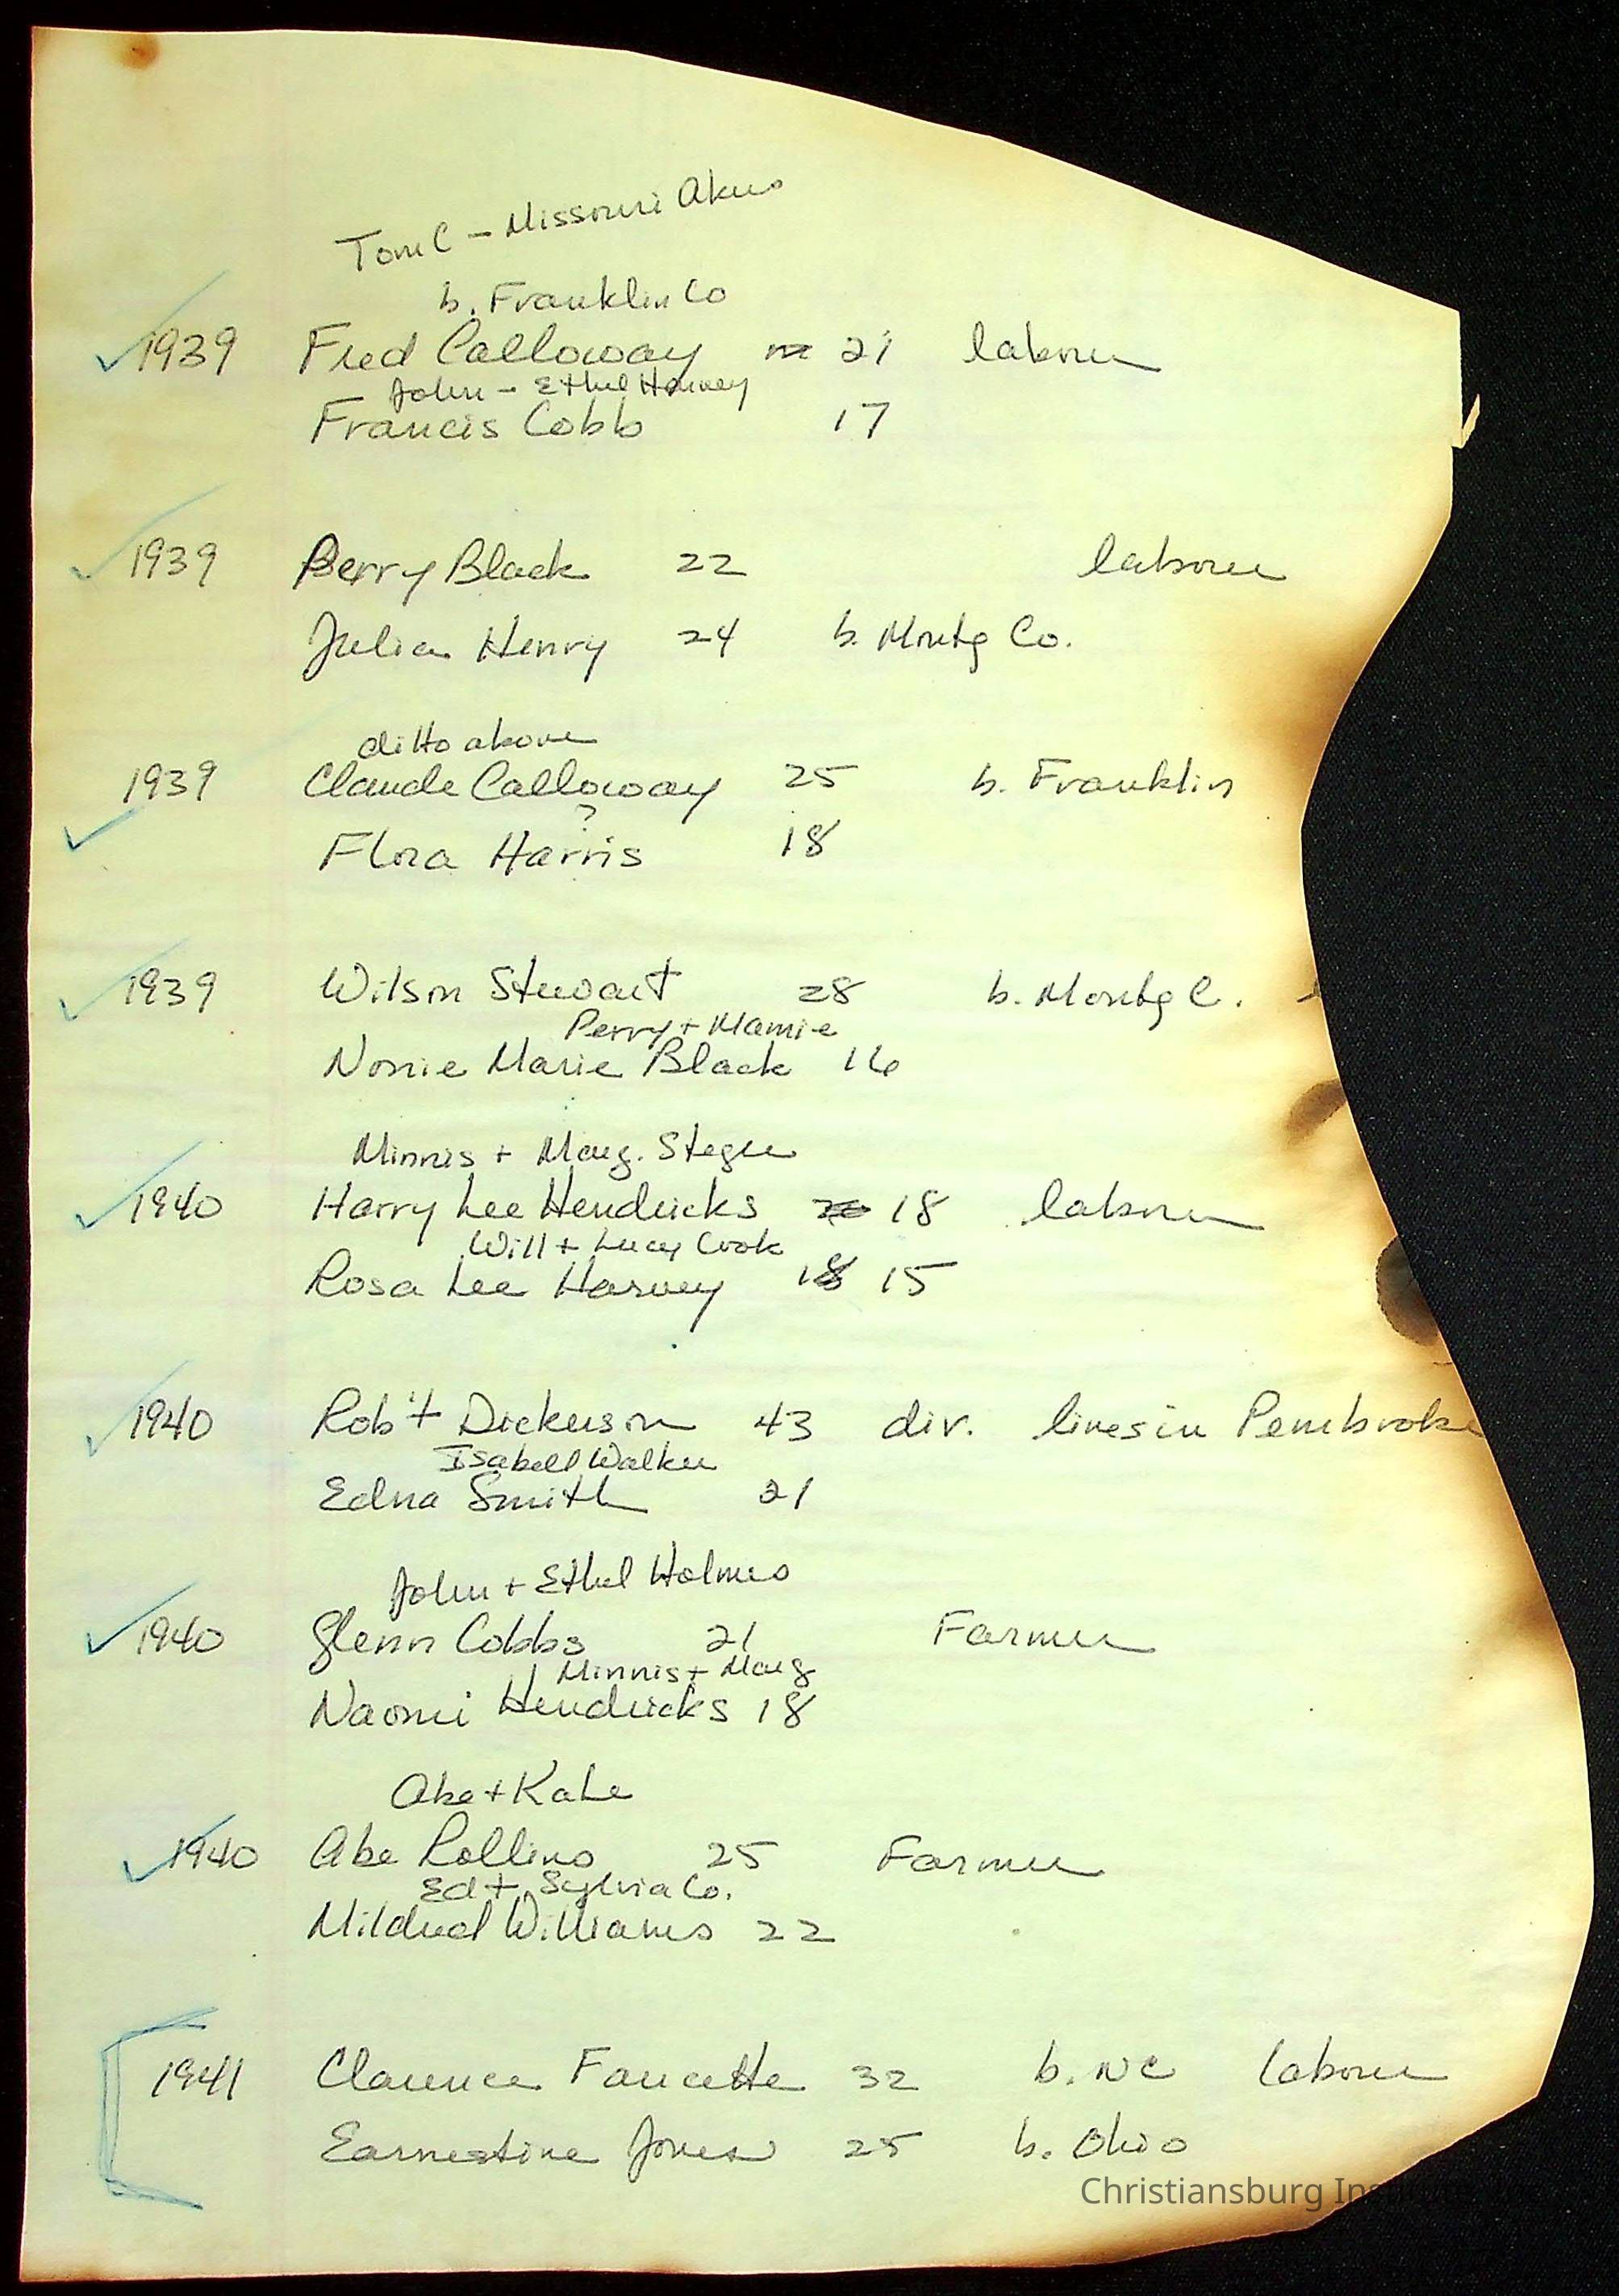 Tom C - Missouri Akers
b. Franklin Co
1939 Fred Calloway 21 laborer
John - Ethel Harvey
Francis Cobb 17
1939 Berry Black 22 laborer
Julia Henry 24 b. Montg Co.
ditto above
1939 Claude Calloway 25 b. Franklin
?
Flora Harris 18
1939 Wilson Stewart 28 b. Montg C.
Perry + Mamie
Nonie Marie Black 16
Minnis + Marg. Steger
1940 Harry Lee Hendricks 18 laborer
Will + Lucy Cook
Rosa Lee Harvey 18 15
1940 Rob't Dickerson 43 div. lives in Pembroke
Isabell Walker
Edna Smith 21
John + Ethel Holmes
1940 Glenn Cobbs 21 Farmer
Minnis + Marg
Naomi Hendricks 18
Abe + Kate
1940 Abe Rollins 25 Farmer
Ed + Sylvia Co.
Mildred Williams 22
1941 Clarence Faucette 32 b. NC laborer
Earnestine Jones 25 b. Ohio
Christiansburg Institute